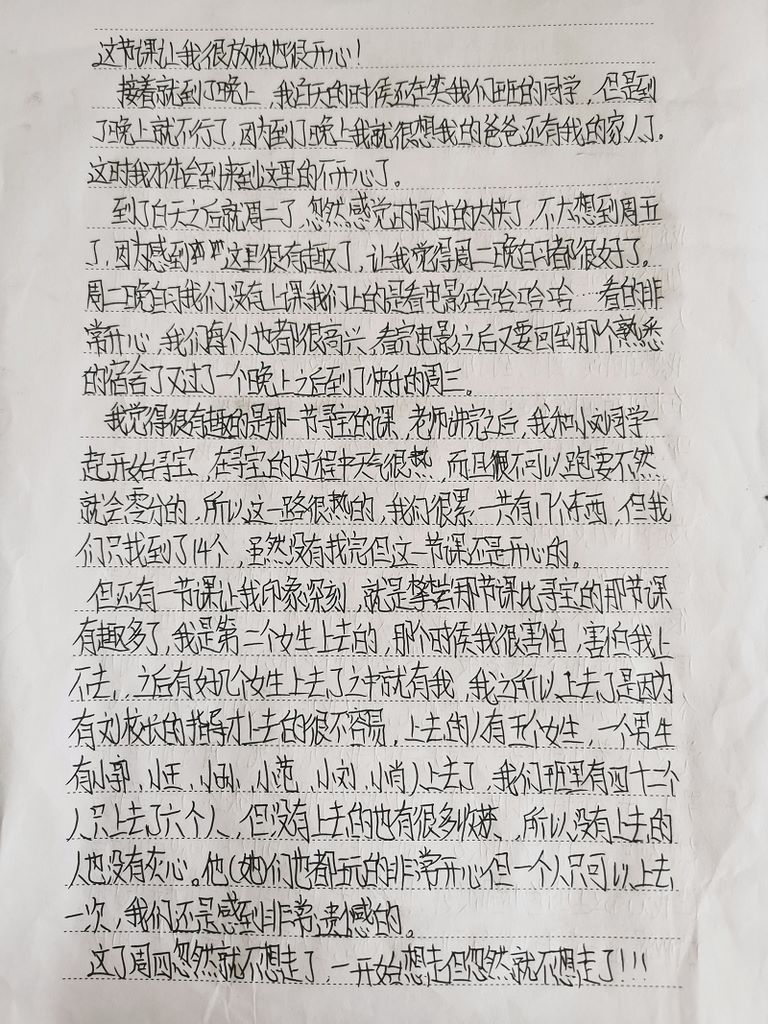 这节课让我很放松也很开心！
接着就到了晚上，我白天的时候还在笑我们班的同学，但是到
了晚上就不行了，因为到了晚上我就很想我的爸爸还有我的家人了。
这时我才体会到来到这里的不开心了。
到了白天之后就周二了，忽然感觉时间过的太快了，不太想到周五
了，因为感到这里很有趣了，让我觉得周二晚自习都很好了。
周二晚自习我们没有上课我们上的是看电影哈哈哈哈…看的非
常开心，我们每个人也都很高兴，看完电影之后又要回到那个熟悉
的宿舍了又过了一个晚上之后到了快乐的周三。
我觉得很有趣的是那一节寻宝的课，老师讲完之后，我和小刘同学一
起开始寻宝，在寻宝的过程中天气很热，而且很不可以跑要不然
就会零分的，所以这一路很热的，我们很累，一共有17个东西，但我
们只找到了14个，虽然没有找完但这一节课还是开心的。
但还有一节课让我印象深刻，就是攀岩那节课比寻宝的那节课
有趣多了，我是第二个女生上去的，那个时候我很害怕，害怕我上
不去，之后有好几个女生上去了之中就有我，我之所以上去了是因为
有刘校长的指导才上去的很不容易，上去的人有五个女生，一个男生
有小郭，小王，小孙，小范，小刘，小肖上去了，我们班里有四十二个
人只上去了六个人，但没有上去的也有很多收获，所以没有上去的
人也没有灰心。他(她)们也都玩的非常开心但一个人只可以上去
一次，我们还是感到非常遗憾的。
这了周四忽然就不想走了，一开始想走但忽然就不想走了!!!